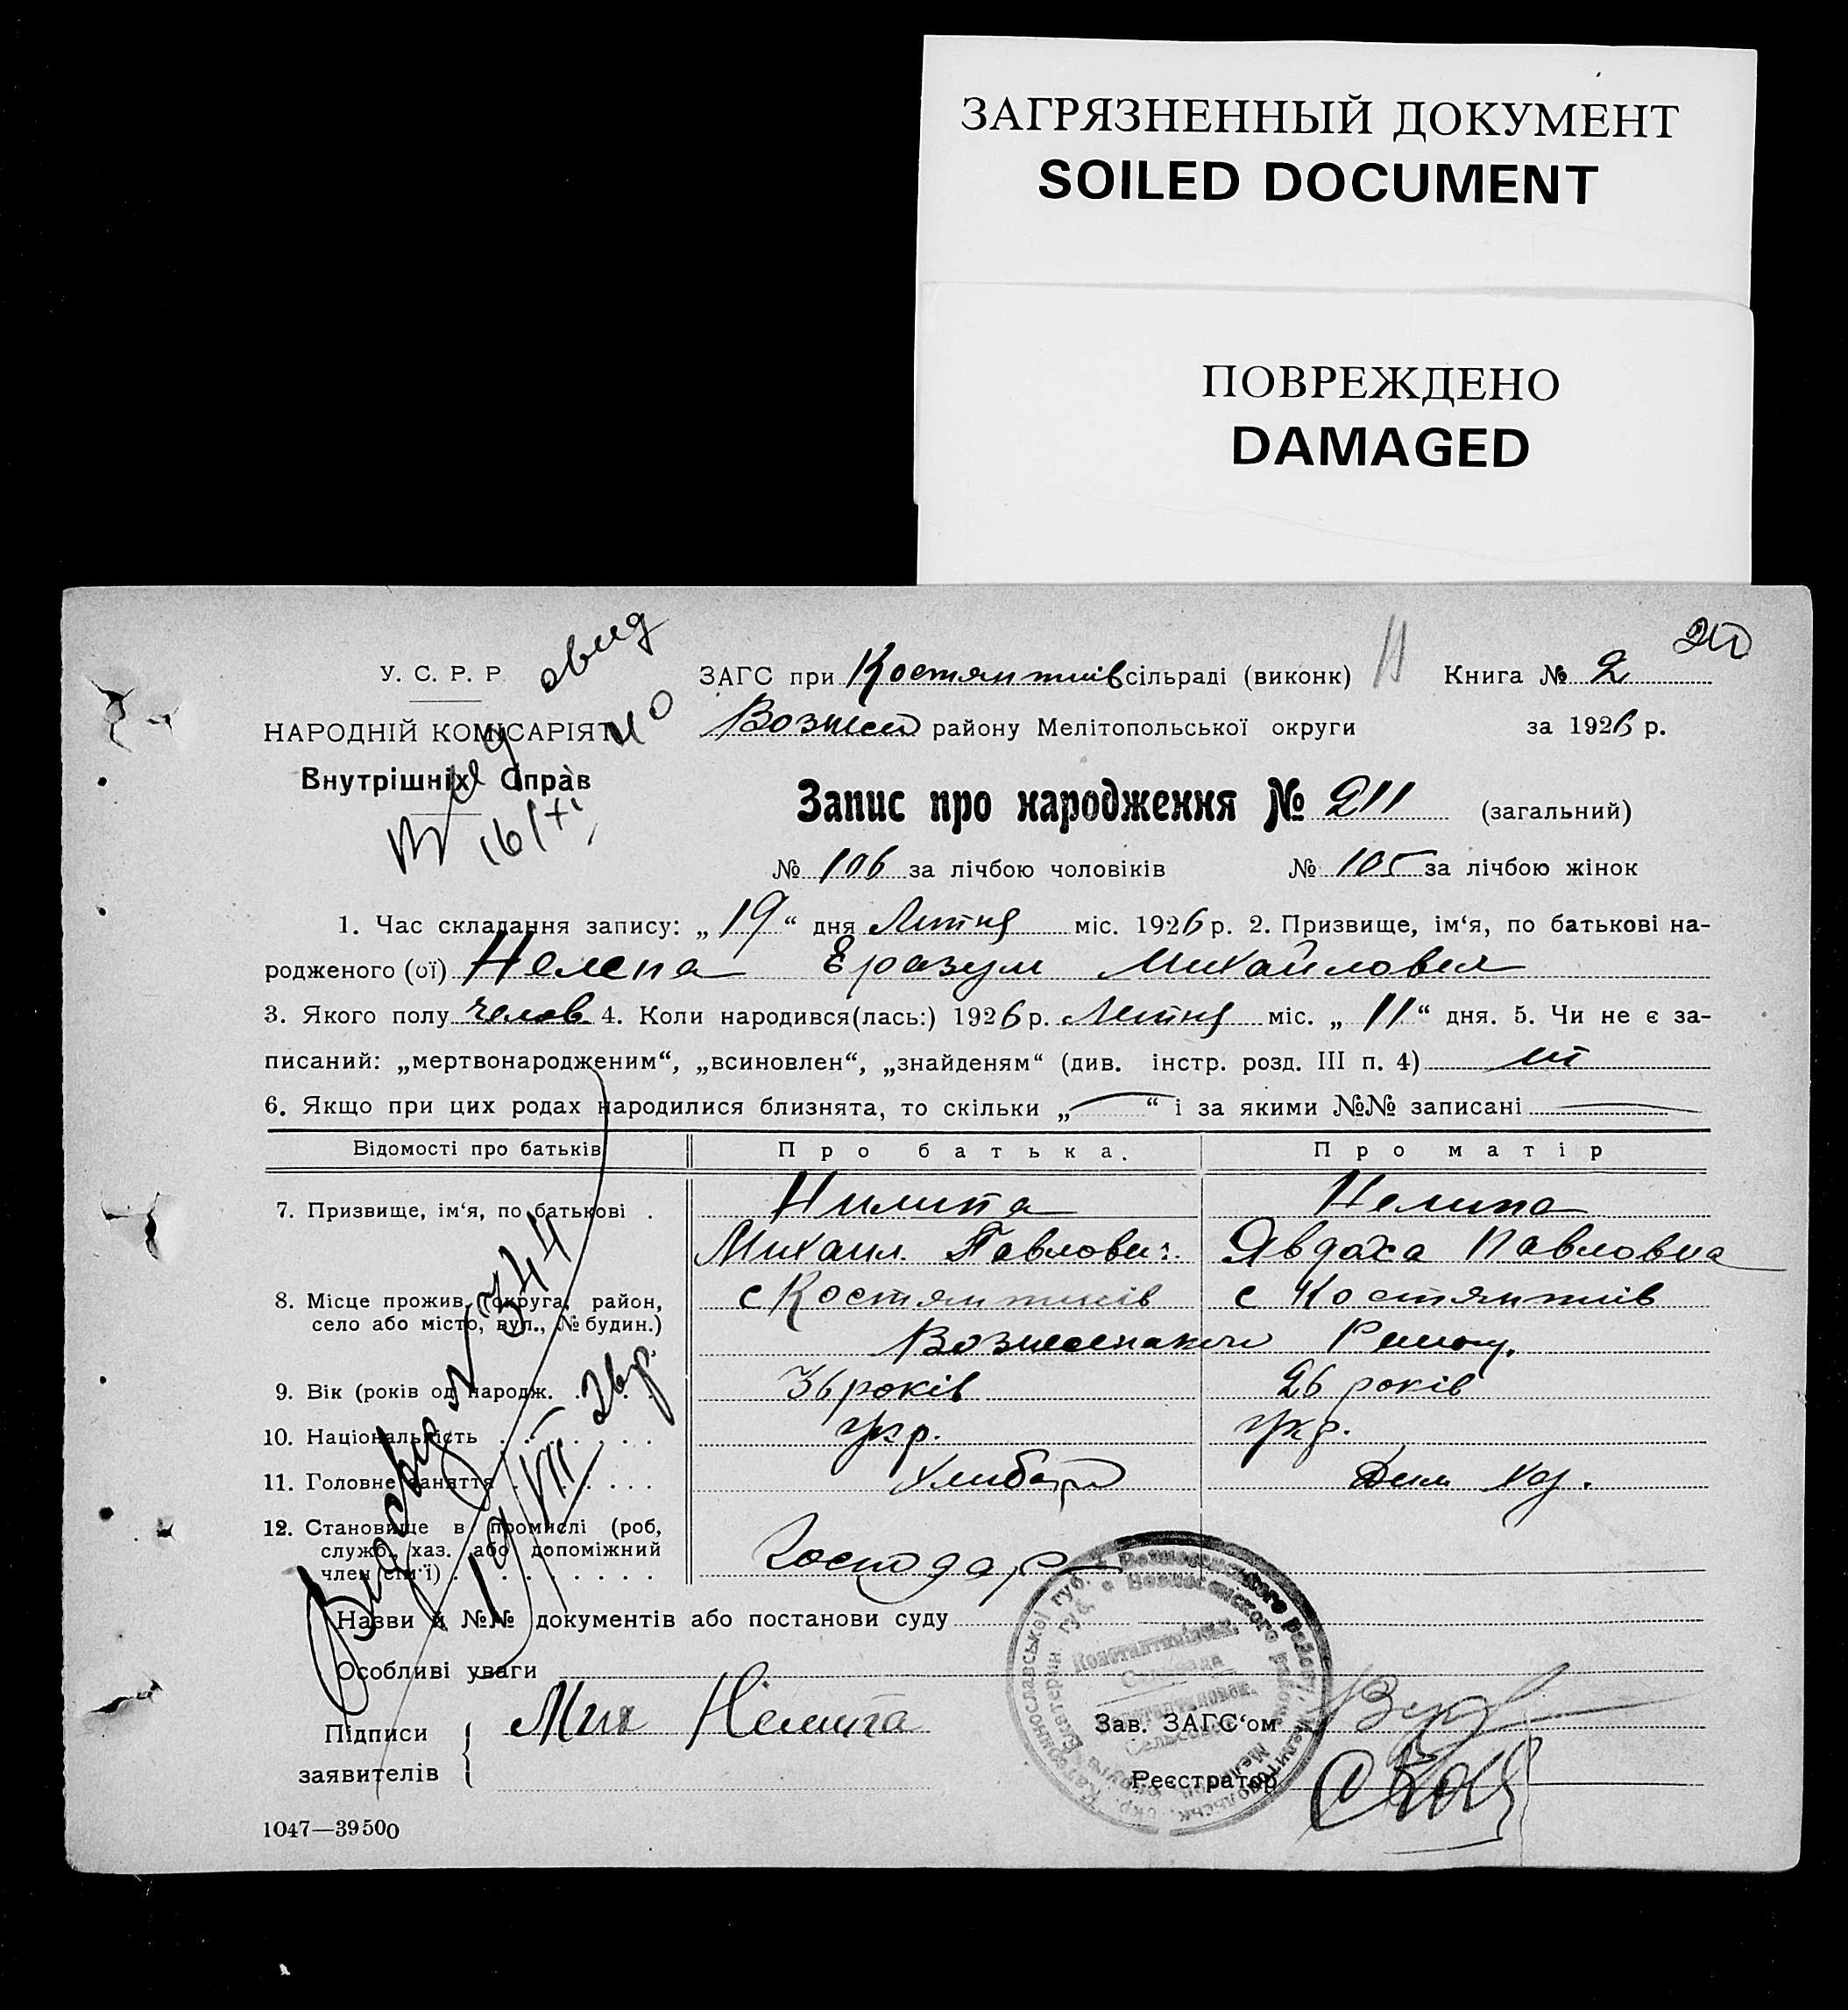 ЗАГРЯЗНЕННЫЙ ДОКУМЕНТ
SOILED DOCUMENT
ПОВРЕЖДЕНО
DAMAGED
У. С. Р. Р.
НАРОДНІЙ КОМІСАРІЯТ
Внутрішніх Справ
16/XI
ЗАГС при Костянтинів сільраді (виконк)
Книга № 2
району Мелітопольської округи
за 1926 р.
Запис про народження № 211 (загальний)
№ 106 за лічбою чоловіків № 105 за лічбою жінок
1. Час складання запису: „ 19 “ дня Липня міс. 1926 р. 2. Призвище, ім‘я, по батькові на-
родженого (ої) Нелепа Єразум Михайлович
3. Якого полу челов. 4. Коли народився(лась:) 1926 р. Липня міс. „ 11 “ дня. 5. Чи не є за-
писаний: „мертвонародженим“, „всиновлен“, „знайденям“ (див. інстр. розд. III п. 4)
6. Якщо при цих родах народилися близнята, то скільки „ “ і за якими №№ записані
Відомості про батьків
Про батька.
Про матір
7. Призвище, ім‘я, по батькові .
Нилипа
Нелипа
Михаил Павлович
Явдоха Павловна
8. Місце прожив. (округа, район,
село або місто, вул., № будин.)
с Костянтинів
с Костянтинів
Вознесенского
9. Вік (років од народж. . . . .
36 років
26 років
10. Національність . . . . . .
Укр.
Укр.
11. Головне заняття . . . . . .
Хлибороб
Дом. хоз.
12. Становище в промислі (роб,
служб., хаз. або допоміжний
член сім‘ї) . . . . . . . .
Господар
Назви й №№ документів або постанови суду
Особливі уваги
Підписи
заявителів
Мих Нелипа
Зав. ЗАГС‘ом
Реєстратор
1047—39500
№ 344
19/VII 26 р.